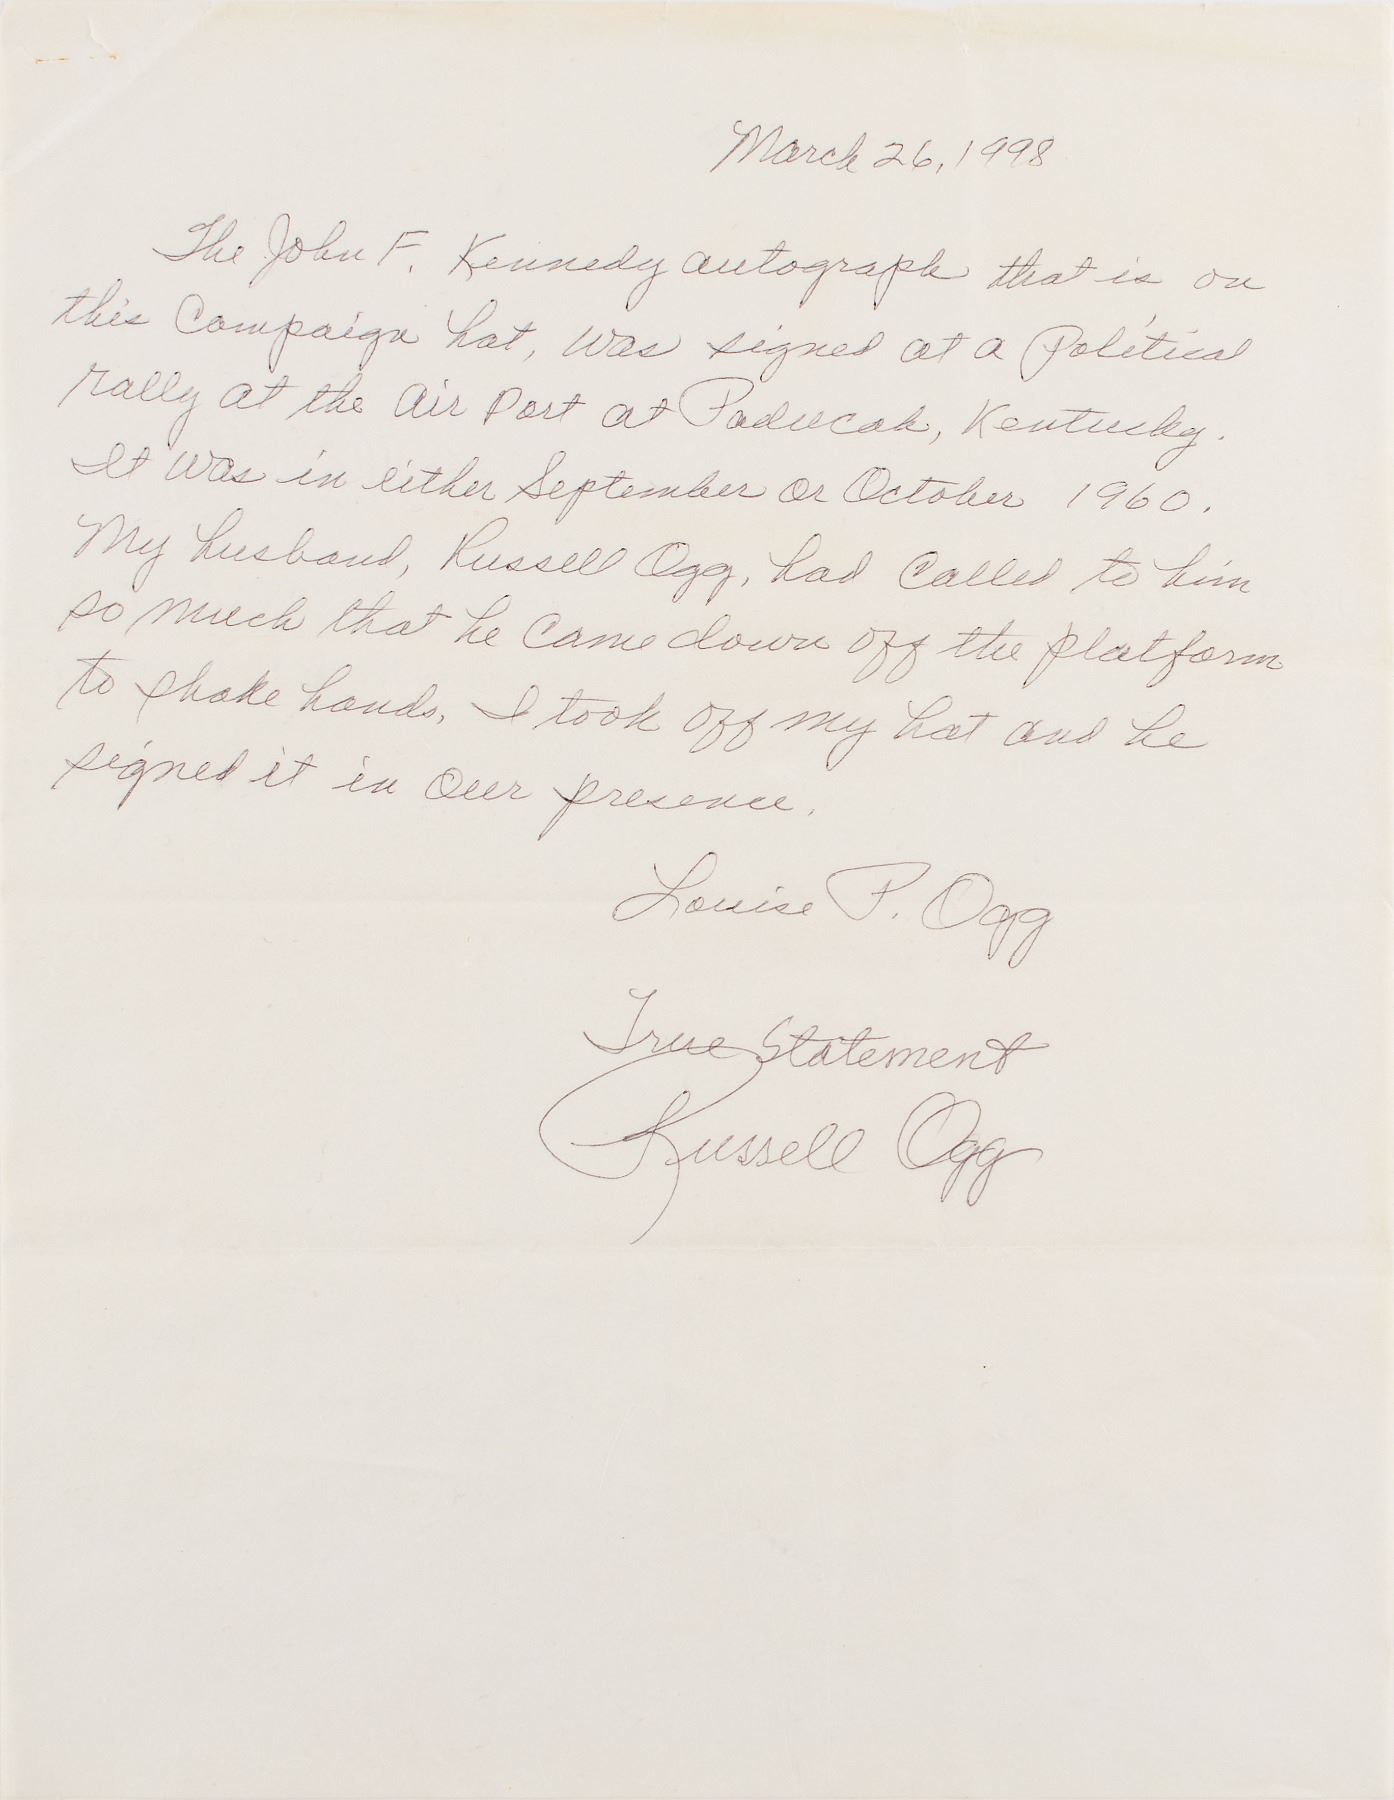 March 26, 1998
The John F. Kennedy autograph that is on
this Campaign hat, was signed at a Political
rally at the Air Port at Paducah, Kentucky.
It was in either September or October 1960.
My husband, Russell Ogg, had called to him
so much that he came down off the platform
to shake hands. I took off my hat and he
signed it in our presence.
Louise P. Ogg
True Statement
Russell Ogg